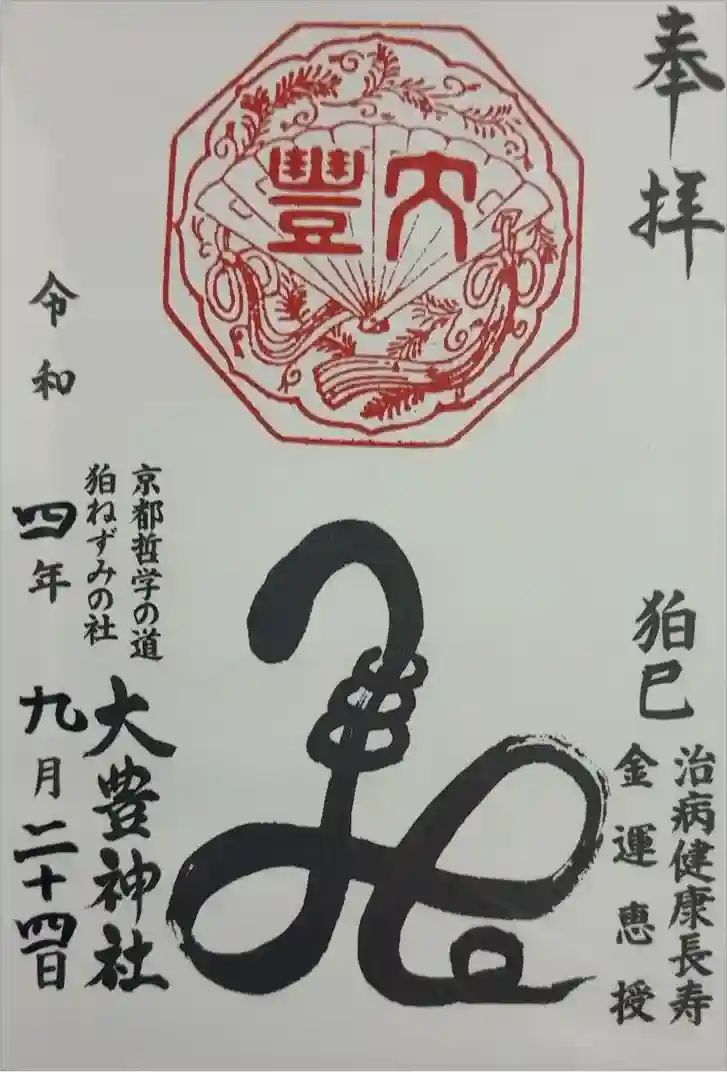 奉拝
大豊
狛巳
治病健康長寿
金運恵授
京都哲学の道
狛ねずみの社
大豊神社
令和四年九月二十四日